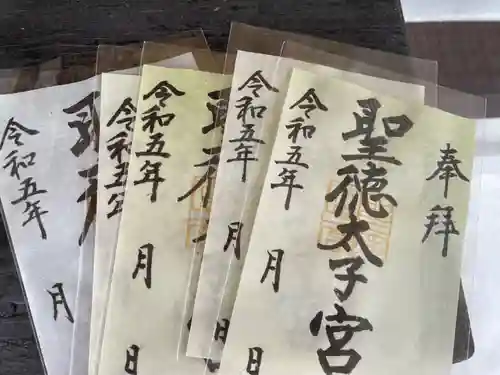 奉拝
聖徳太子宮
令和五年 月 日
令和五年 月 日
令和五年 月 日
令和五
令和五年 月